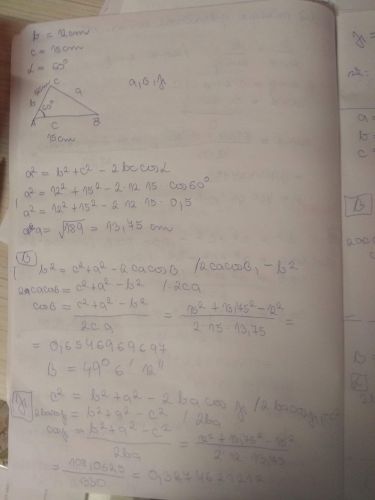 b = 12cm
c = 15cm
α = 60°
C
a, β, γ
b
a
60°
A
c
B
15cm
a² = b² + c² - 2bc cosα
a² = 12² + 15² - 2·12·15 cos60°
a² = 12² + 15² - 2·12·15·0,5
a = √189 = 13,75 cm
β
b² = c² + a² - 2ca cosβ /2ca cosβ, -b²
2ca cosβ = c² + a² - b² /:2ca
cosβ = c² + a² - b² / 2ca = 15² + 13,75² - 12² / 2·15·13,75 =
= 0,6546969697
β = 49° 6' 12''
γ
c² = b² + a² - 2ba cosγ /2ba cosγ, -c²
2ba cosγ = b² + a² - c² /:2ba
cosγ = b² + a² - c² / 2ba = 12² + 13,75² - 15² / 2·12·13,75
= 108,0625 / 330 = 0,3274621212